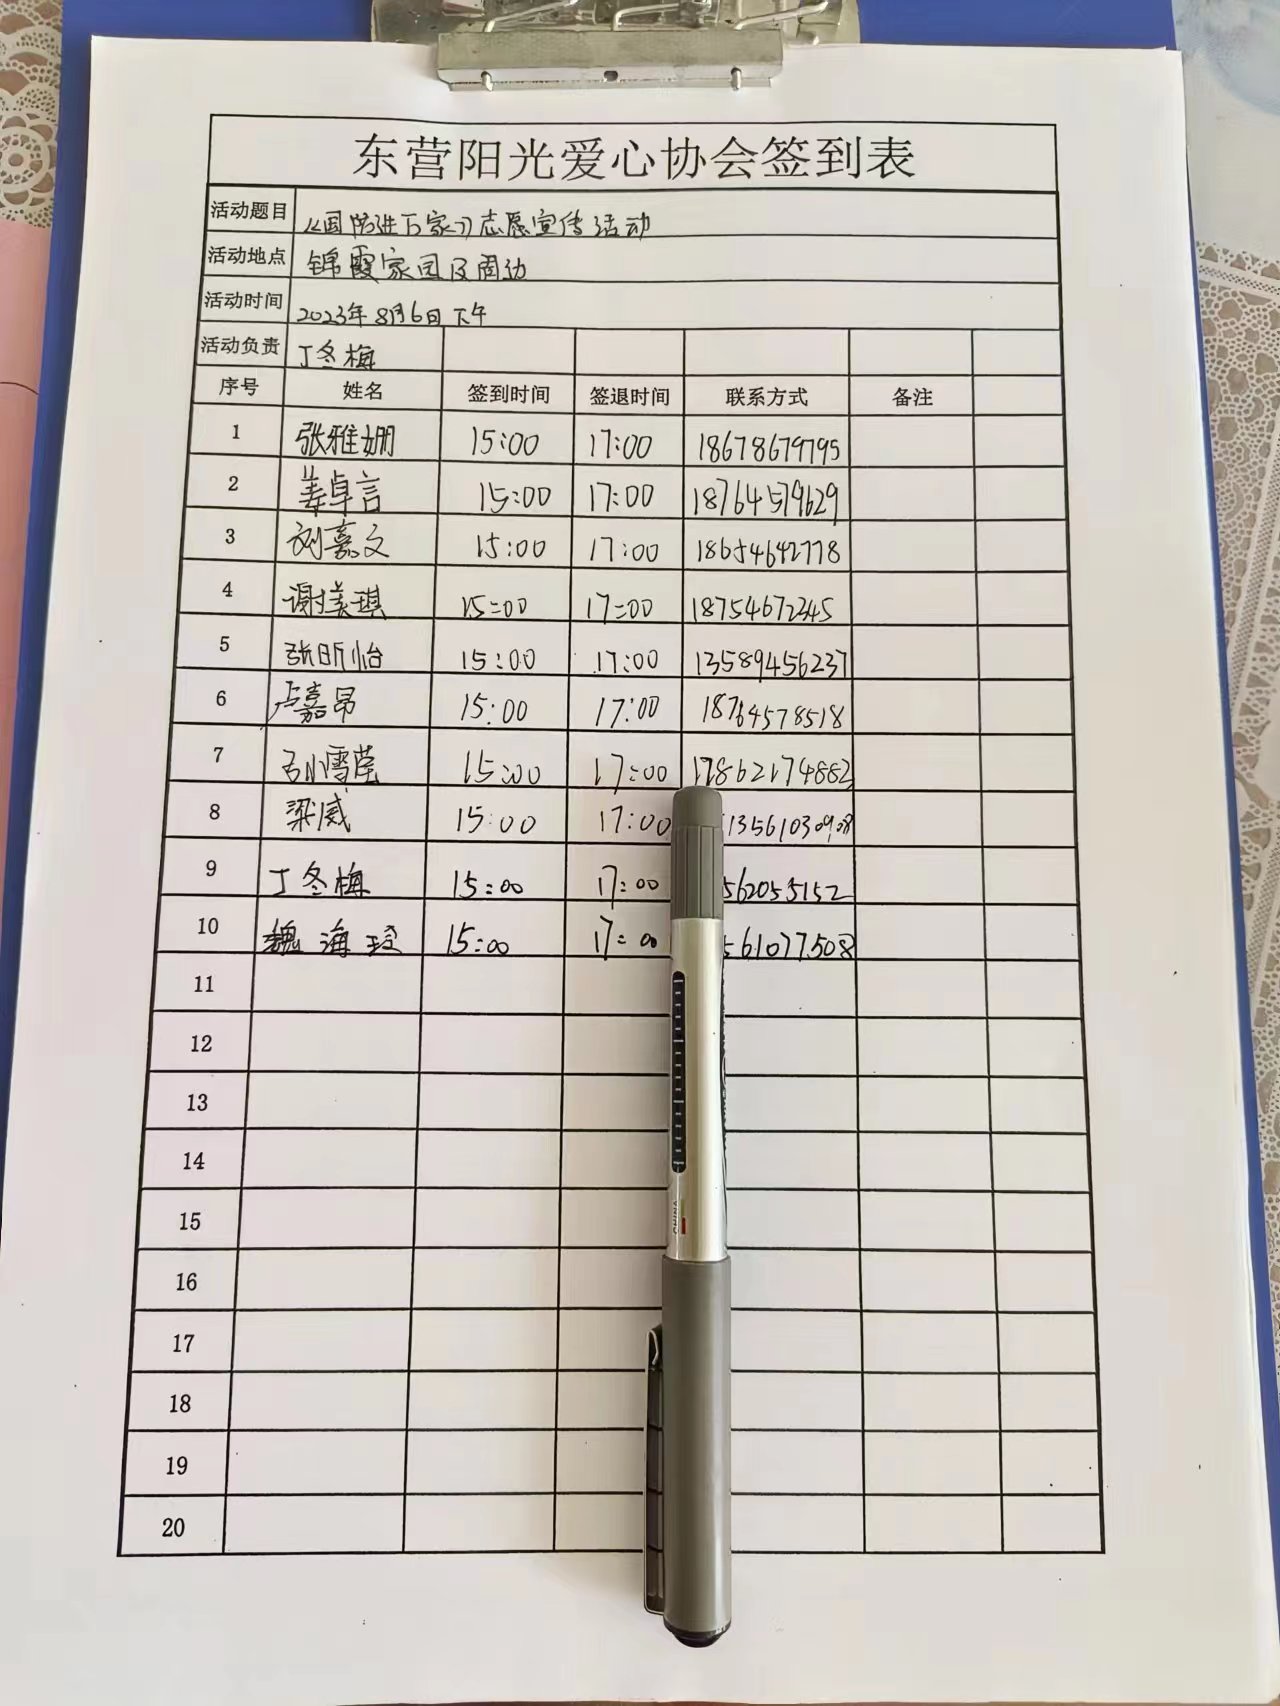 东营阳光爱心协会签到表
活动题目 《国防进万家》志愿宣传活动
活动地点 锦霞家园及周边
活动时间 2023年8月6日下午
活动负责 丁冬梅
序号 姓名 签到时间 签退时间 联系方式 备注
1 张雅姗 15:00 17:00 18678679795
2 姜卓言 15:00 17:00 18764579629
3 刘嘉文 15:00 17:00 18654642778
4 谢美琪 15=00 17=00 18754672345
5 张昕怡 15:00 17:00 13589456237
6 卢嘉昂 15:00 17:00 18764578518
7 15:00 17:00 17862174882
8 梁威 15:00 17:00 13561030908
9 丁冬梅 15:00 17:00 562055152
10 魏海 15:00 17:00 561077508
11
12
13
14
15
16
17
18
19
20
CHINA